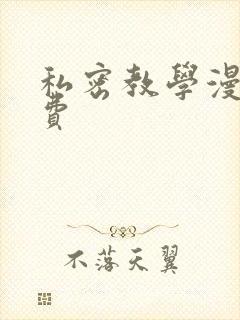 私密教學漫
費
不落天翼